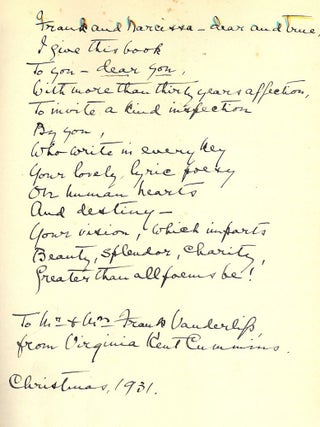 Frank and Narcissa – dear and true,
I give this book
To you – dear you,
With more than thirty years affection,
To invite a kind inspection
By you,
Who write in every key
Your lovely, lyric poesy
On human hearts
And destiny –
Your vision, which imparts
Beauty, splendor, charity,
Greater than all poems be!
To Mr & Mrs Frank Vanderlip,
from Virginia Kent Cummins.
Christmas, 1931.